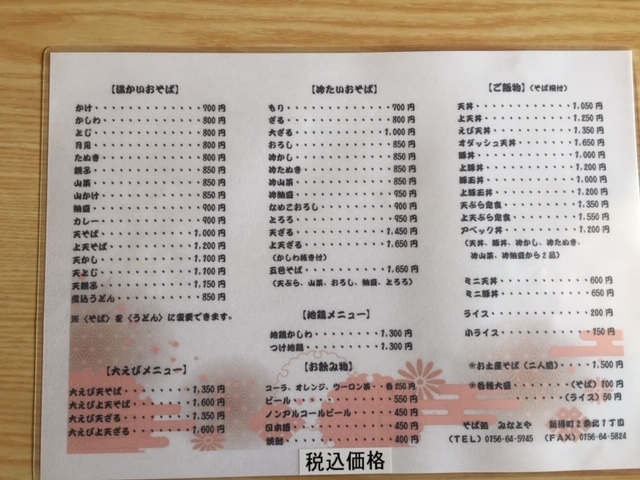 【温かいおそば】
かけ・・・・・・・・・・・・700円
かしわ・・・・・・・・・・・800円
とじ・・・・・・・・・・・・800円
月見・・・・・・・・・・・・800円
たぬき・・・・・・・・・・・800円
親子・・・・・・・・・・・・850円
山菜・・・・・・・・・・・・850円
山かけ・・・・・・・・・・・850円
納豆・・・・・・・・・・・・900円
カレー・・・・・・・・・・・900円
天そば・・・・・・・・・・1,000円
上天そば・・・・・・・・・1,200円
天かし・・・・・・・・・・1,700円
天とじ・・・・・・・・・・1,700円
天親子・・・・・・・・・・1,750円
煮込うどん・・・・・・・・・850円
※〈そば〉を〈うどん〉に変更できます。
【大えびメニュー】
大えび天そば・・・・・・・1,350円
大えび上天そば・・・・・・1,600円
大えび天ざる・・・・・・・1,350円
大えび上天ざる・・・・・・1,600円
【冷たいおそば】
もり・・・・・・・・・・・・700円
ざる・・・・・・・・・・・・800円
大ざる・・・・・・・・・・1,000円
おろし・・・・・・・・・・・850円
冷かし・・・・・・・・・・・850円
冷たぬき・・・・・・・・・・850円
冷山菜・・・・・・・・・・・850円
冷納豆・・・・・・・・・・・950円
なめこおろし・・・・・・・・900円
とろろ・・・・・・・・・・・950円
天ざる・・・・・・・・・・1,450円
上天ざる・・・・・・・・・1,650円
(かしわ抜き付)
五色そば・・・・・・・・・1,650円
(天ぷら、山菜、おろし、納豆、とろろ)
【地鶏メニュー】
地鶏かしわ・・・・・・・・1,300円
つけ地鶏・・・・・・・・・1,300円
【お飲み物】
コーラ、オレンジ、ウーロン茶・・各250円
ビール・・・・・・・・・・・550円
ノンアルコールビール・・・・450円
日本酒・・・・・・・・・・・450円
焼酎・・・・・・・・・・・・400円
【ご飯物】(そば椀付)
天丼・・・・・・・・・・・1,050円
上天丼・・・・・・・・・・1,250円
えび天丼・・・・・・・・・1,350円
オダッシュ天丼・・・・・・1,650円
豚丼・・・・・・・・・・・1,000円
上豚丼・・・・・・・・・・1,200円
豚玉丼・・・・・・・・・・1,000円
上豚玉丼・・・・・・・・・1,200円
天ぷら定食・・・・・・・・1,350円
上天ぷら定食・・・・・・・1,550円
アベック丼・・・・・・・・1,200円
(天丼、豚丼、冷かし、冷たぬき、
冷山菜、冷納豆から2品)
ミニ天丼・・・・・・・・・・600円
ミニ豚丼・・・・・・・・・・650円
ライス・・・・・・・・・・・200円
小ライス・・・・・・・・・・150円
※お土産そば(二人前)・・・1,500円
※各種大盛・・・・・・(そば)100円
(ライス)50円
そば処 みなとや 新得町2条北1丁目
(TEL) 0156-64-5945 (FAX) 0156-64-5824
税込価格